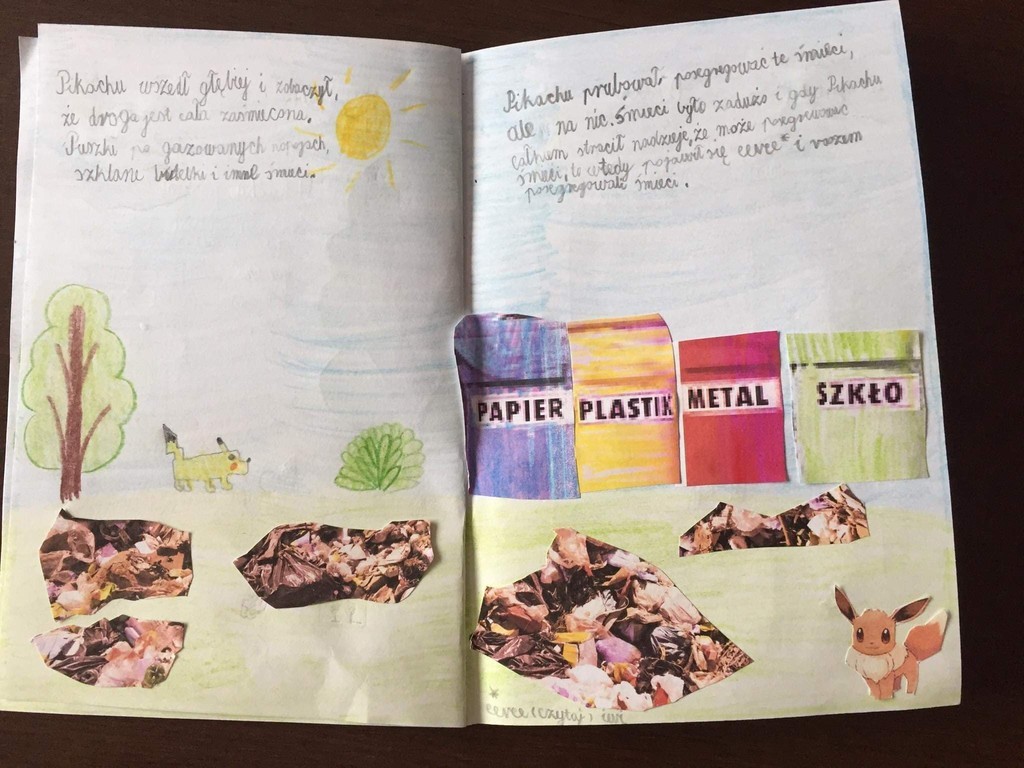 Pikachu wszedł głębiej i zobaczył,
że droga jest cała zaśmiecona.
Puszki po gazowanych napojach,
szklane butelki i inne śmieci.
Pikachu prubował posegregować te śmieci,
ale na nic. Śmieci było zadużo i gdy Pikachu
całkiem stracił nadzieję, że może posegregować
śmieci, to wtedy pojawił się eevee* i razem
posegregowali śmieci.
PAPIER
PLASTIK
METAL
SZKŁO
*
eevee (czytaj) iwi